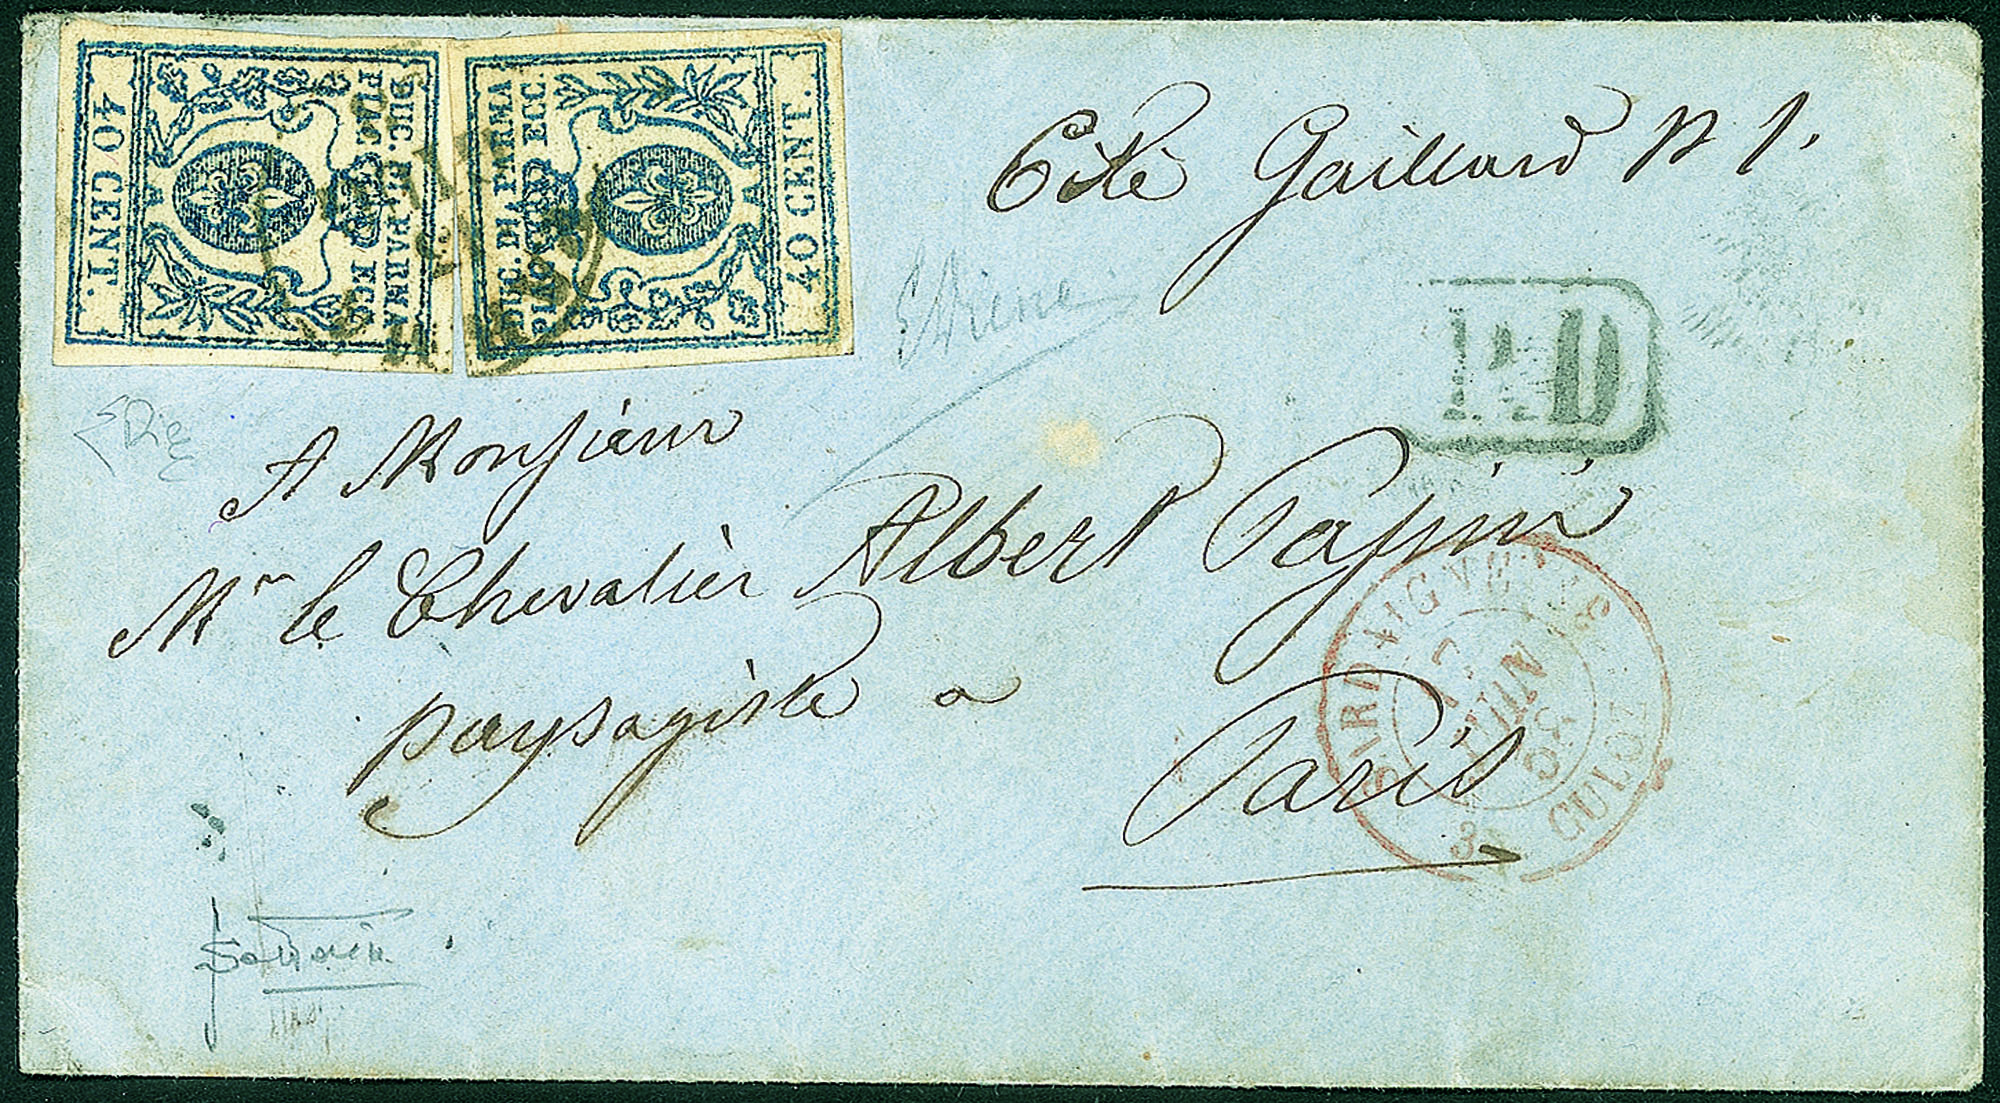 DUC. DI PARMA
PIAC. ECC.
40 CENT.
DUC. DI PARMA
PIAC. ECC.
40 CENT.
Cité Gaillard N 1.
P.D
A Monsieur
Mr le Chevalier Albert
paysagiste a
Paris
SARDAIGNE
17
JUIN
59
CULOZ
3